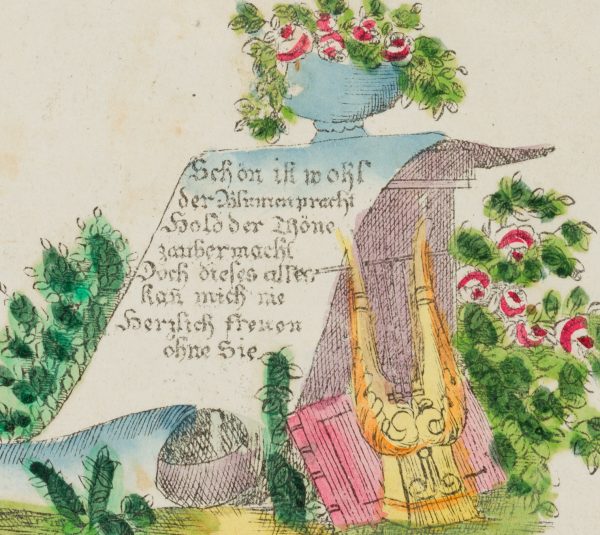 Schön ist wohl
der Blumenpracht
Hold der Töne
zaubermacht
Doch dieses alles
kan̄ mich nie
Herzlich freuen
ohne Sie